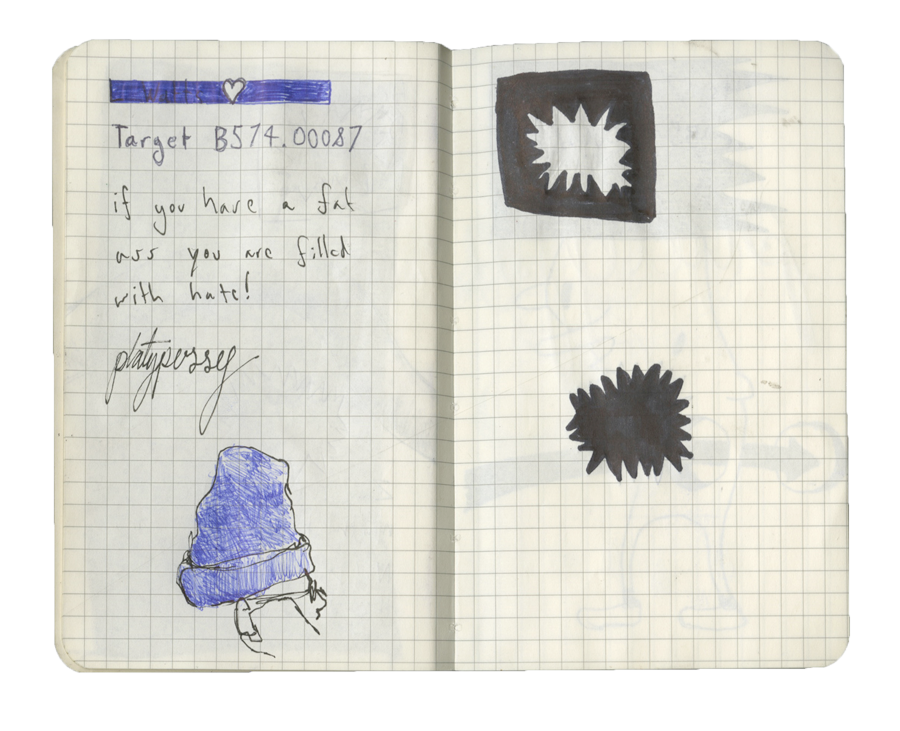 Target B574.00087
if you have a fat
ass you are filled
with hate!
platypussey